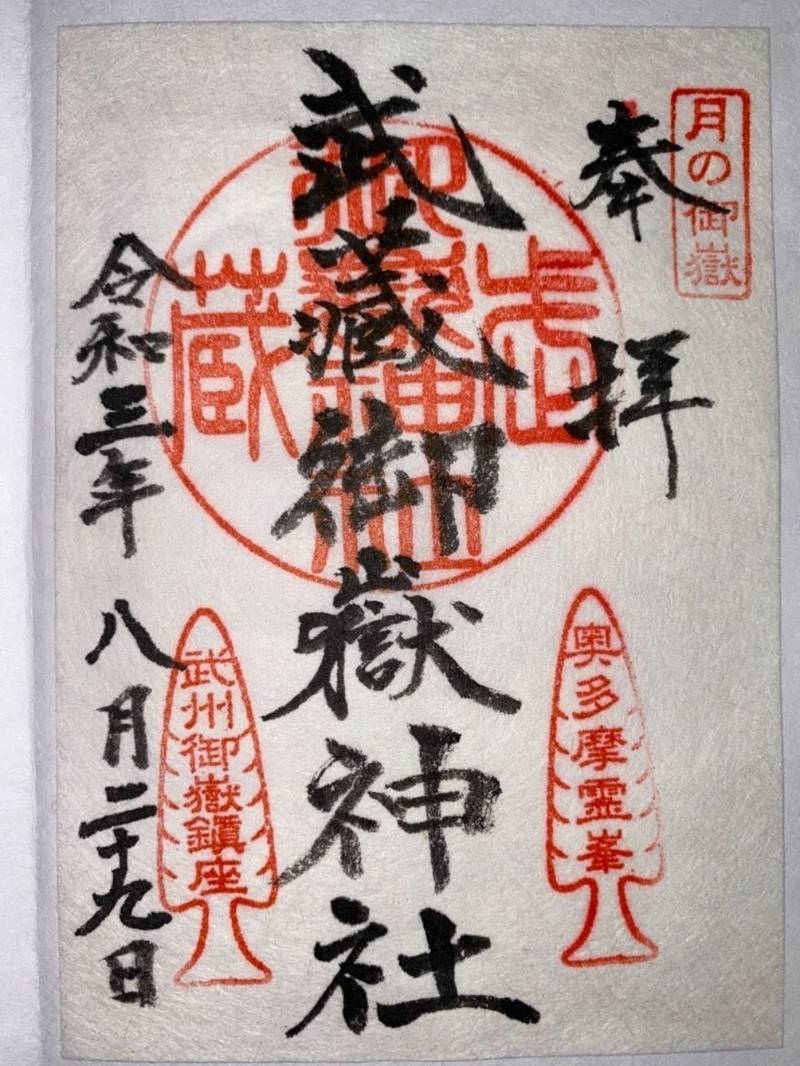 月の御嶽
奉拝
武蔵御嶽神社
武蔵御嶽神社
奥多摩霊峯
武州御嶽鎮座
令和三年八月二十九日